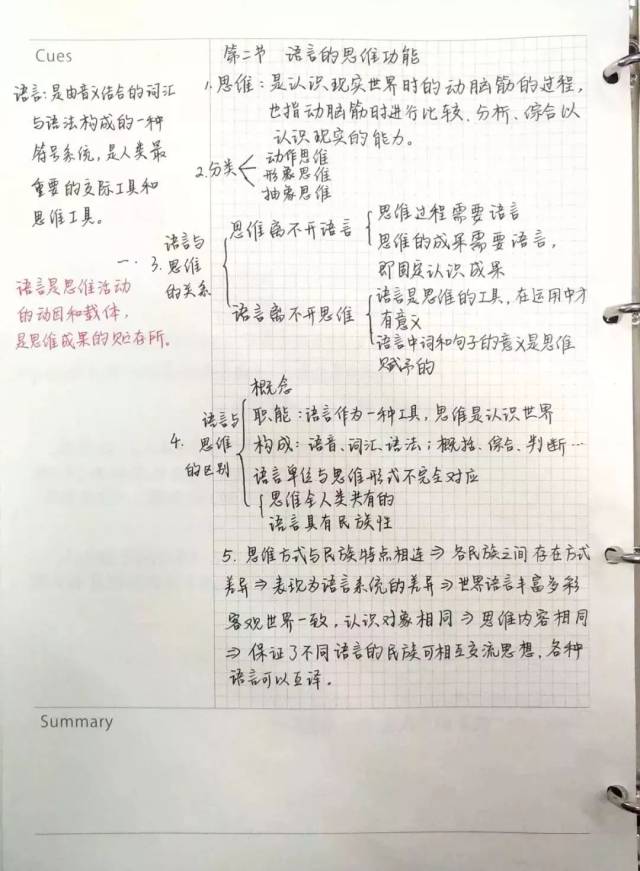 Cues
语言:是由音义结合的词汇
与语法构成的一种
符号系统,是人类最
重要的交际工具和
思维工具。
语言是思维活动
的动因和载体,
是思维成果的贮存所。
第二节 语言的思维功能
1.思维:是认识现实世界时的动脑筋的过程,
也指动脑筋时进行比较、分析、综合以
认识现实的能力。
2.分类
动作思维
形象思维
抽象思维
一、
3.
语言与
思维
的关系
思维离不开语言
思维过程需要语言
思维的成果需要语言,
即固定认识成果
语言离不开思维
语言是思维的工具,在运用中才
有意义
语言中词和句子的意义是思维
赋予的
4.
语言与
思维
的区别
概念
职能:语言作为一种工具,思维是认识世界
构成:语音、词汇、语法;概括、综合、判断…
语言单位与思维形式不完全对应
思维全人类共有的
语言具有民族性
5. 思维方式与民族特点相连⇒各民族之间存在方式
差异⇒表现为语言系统的差异⇒世界语言丰富多彩
客观世界一致,认识对象相同⇒思维内容相同
⇒保证了不同语言的民族可相互交流思想,各种
语言可以互译。
Summary